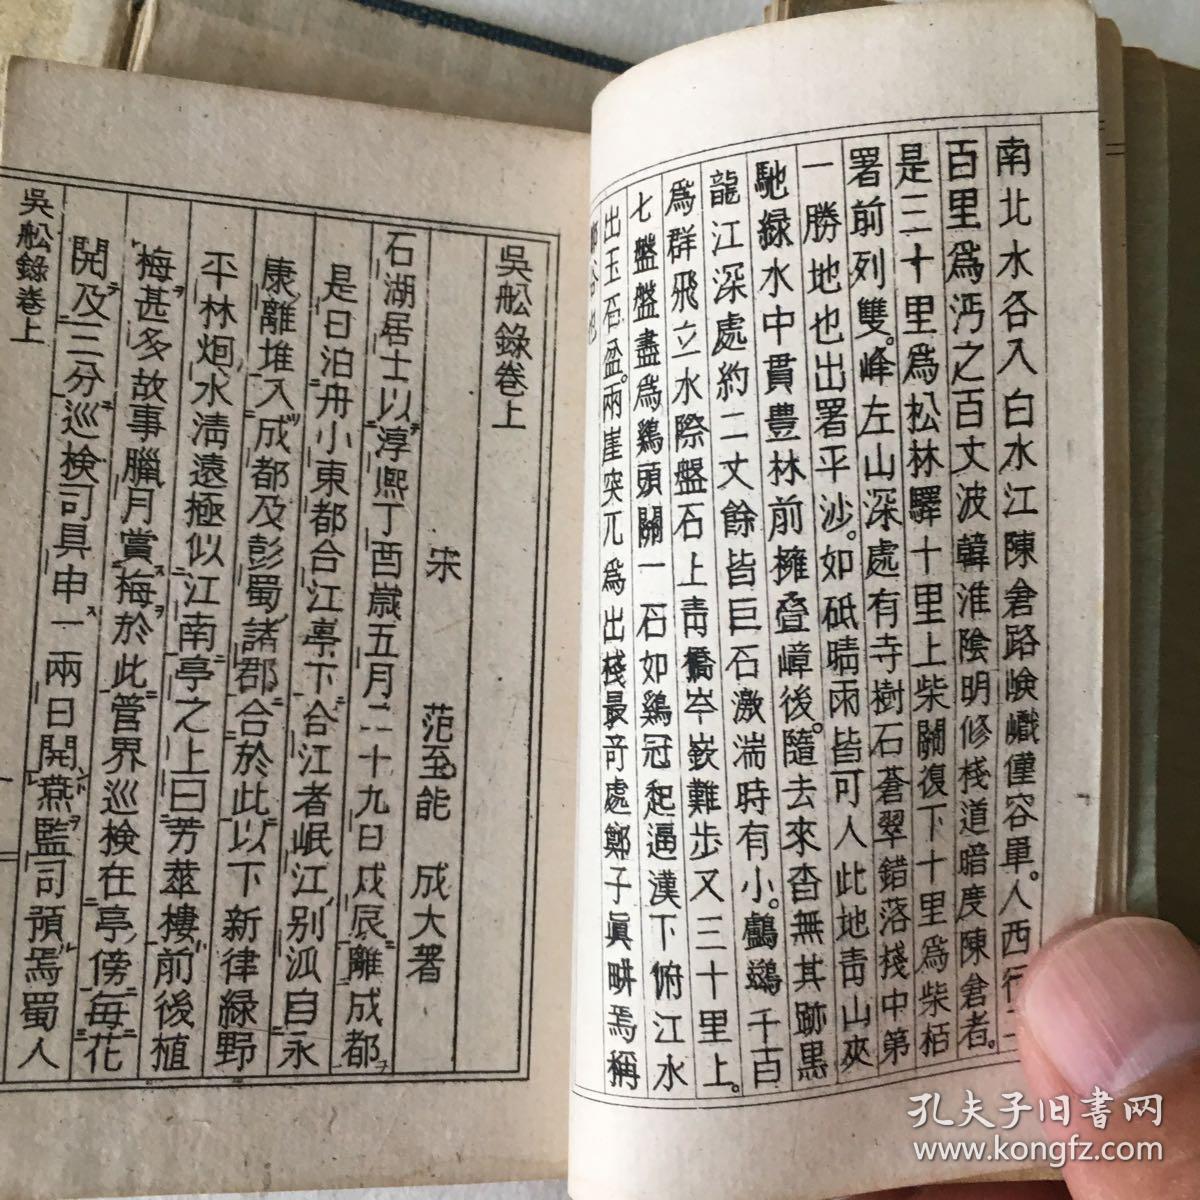 南北水各入白水江陳倉路險巇僅容單人西行
百里爲沔之百丈波韓淮陰明修棧道暗度陳倉者
是三十里爲松林驛十里上柴關復下十里爲柴栢
署前列雙峰左山深處有寺樹石蒼翠錯落棧中第
一勝地也出署平沙如砥晴雨皆可人此地靑山夾
馳緑水中貫豊林前擁疊嶂後隨去來杳無其跡黒
龍江深處約二丈餘皆巨石激湍時有小鸕鷀千百
爲群飛立水際盤石上靑橋岑嶔難步又三十里上
七盤盤盡爲鷄頭關一石如鷄冠起逼漢下俯江水
出玉石盆兩崖突兀爲出棧最奇處鄭子眞畊焉稱
吳舩錄卷上
宋 范至能 成大著
石湖居士以淳熙丁酉歳五月二十九日戊辰離成都
是日泊舟小東都合江亭下合江者岷江別派自永
康離堆入成都及彭蜀諸郡合於此以下新律緑野
平林烟水淸遠極似江南亭之上曰芳蕐樓前後植
梅甚多故事臘月賞梅於此管界巡検在亭傍每花
開及三分巡検司具申一兩日開燕監司預焉蜀人
吳舩錄卷上
孔夫子旧书网
www.kongfz.com